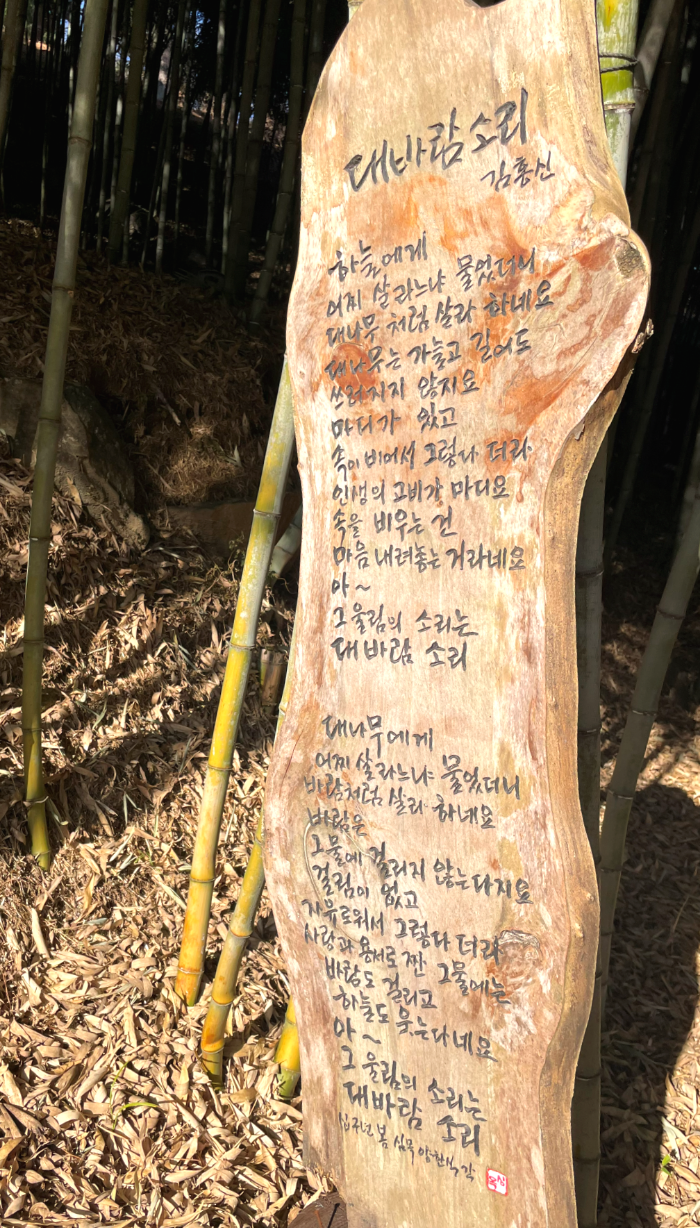 대바람 소리
김홍신
하늘에게
어찌 살라느냐 물었더니
대나무 처럼 살라 하네요
대나무는 가늘고 길어도
쓰러지지 않지요
마디가 있고
속이 비어서 그렇다 더라
인생의 고비가 마디요
속을 비우는 건
마음 내려놓는 거라네요
아~
그 울림의 소리는
대바람 소리
대나무에게
어찌 살라느냐 물었더니
바람처럼 살라 하네요
바람은
그물에 걸리지 않는다지요
걸림이 없고
자유로워서 그렇다 더라
사랑과 용서로 짠 그물에는
바람도 걸리고
하늘도 웃는다네요
아~
그 울림의 소리는
대바람 소리
십구년 봄 심목 양한석 각